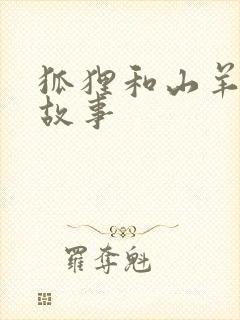 狐狸和山羊
故事
羅奪魁